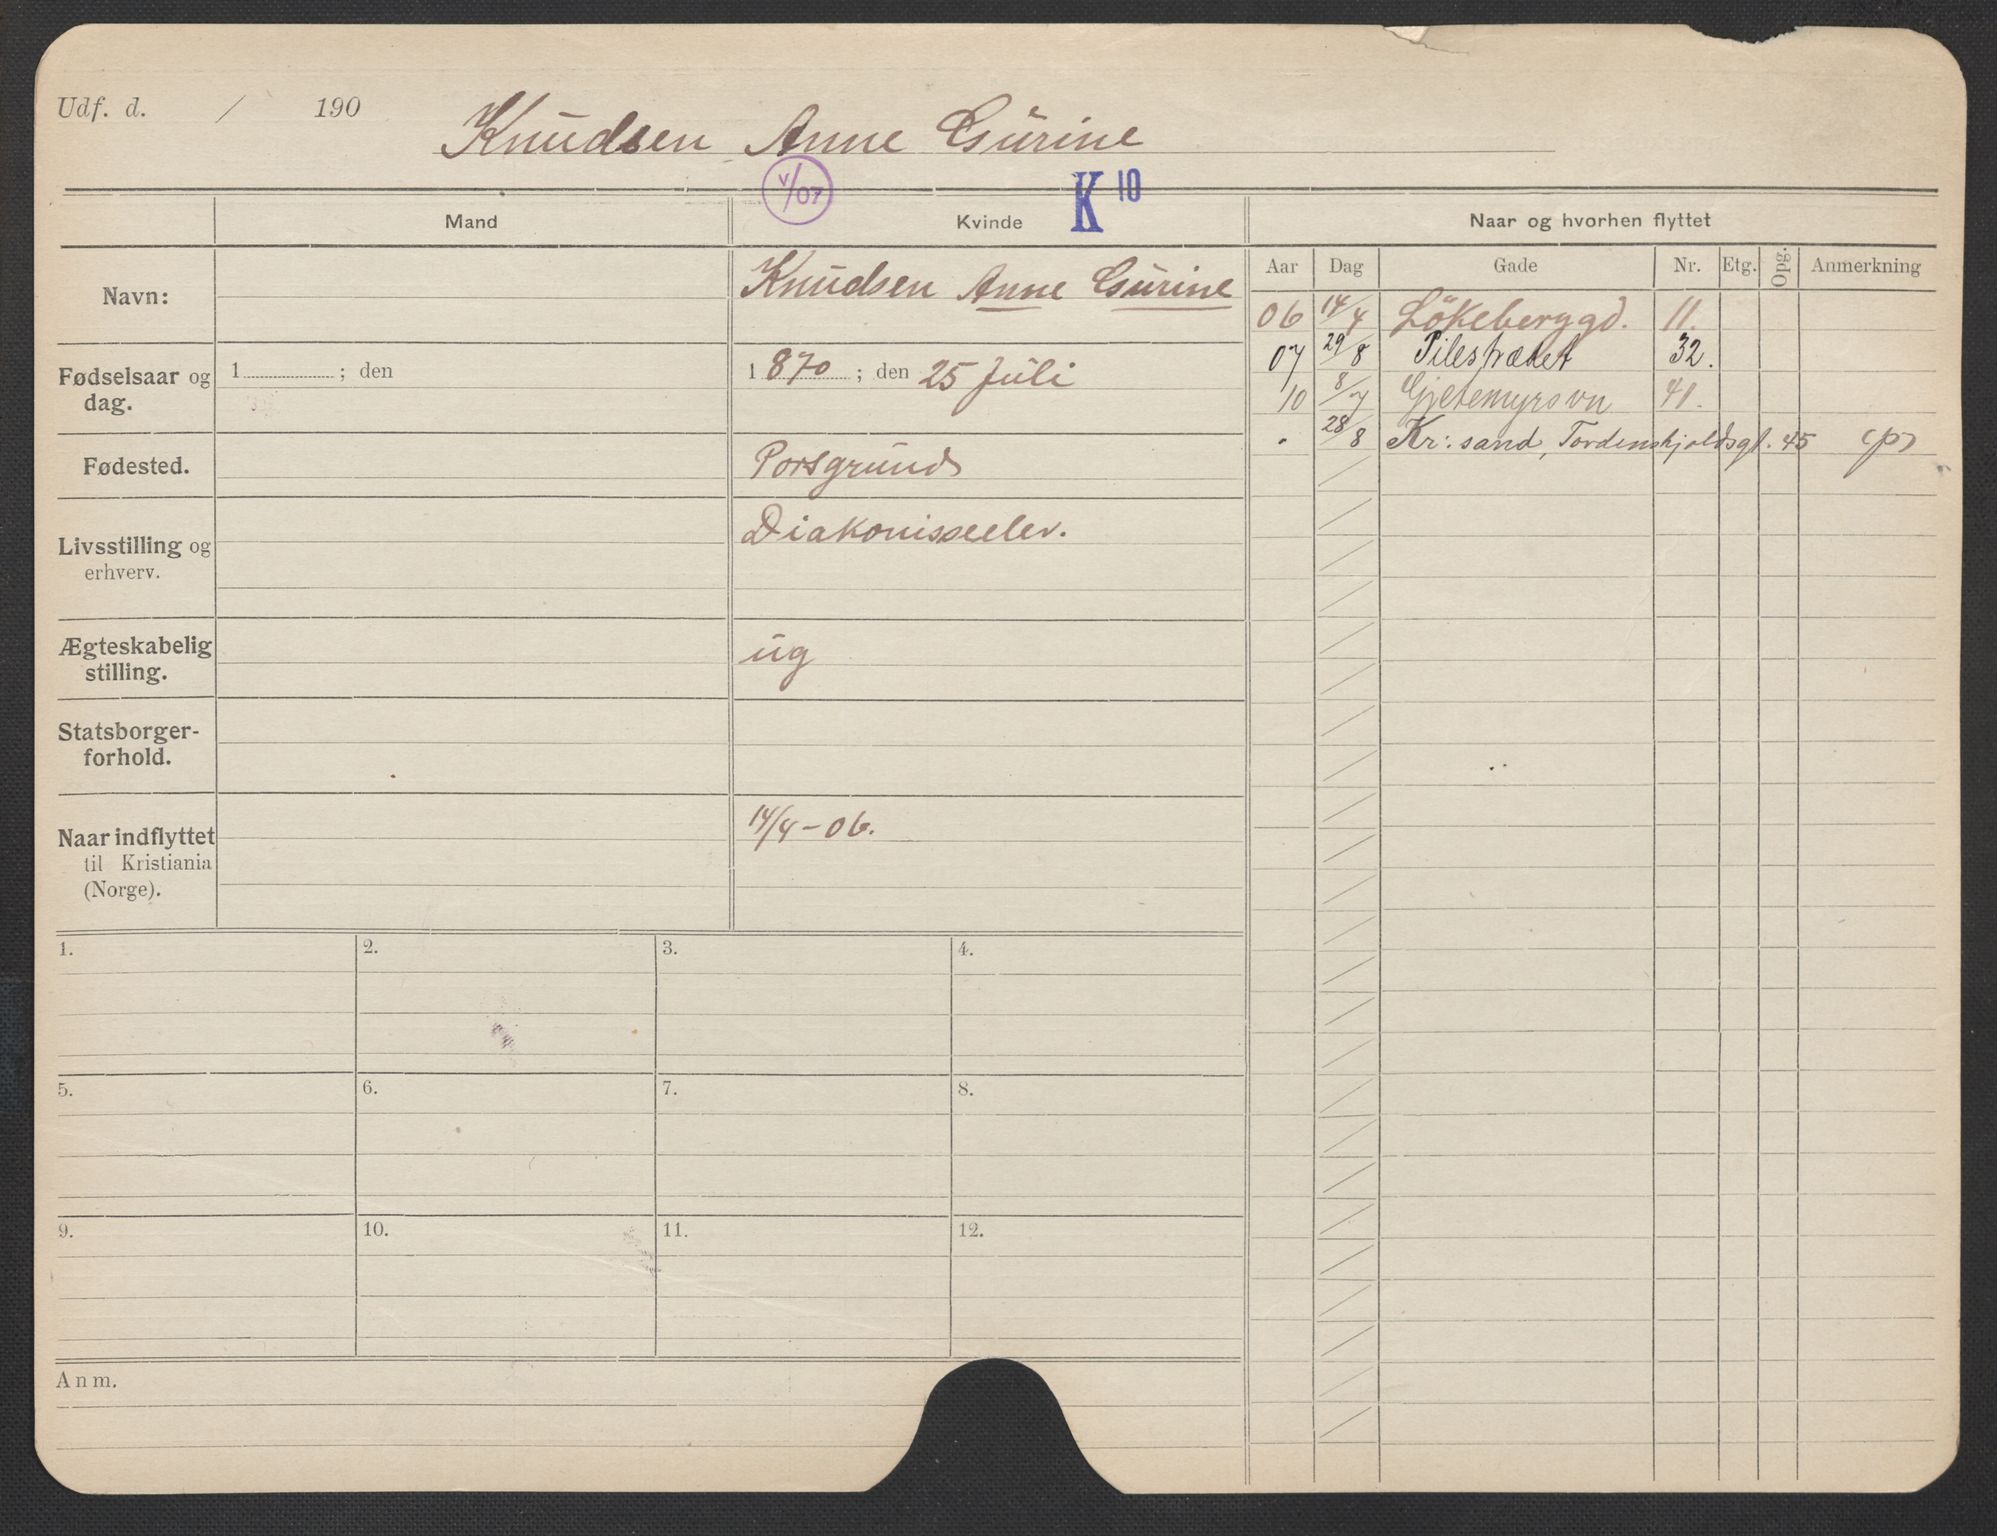 Udf. d. / 190
Knudsen Anne Gurine
V/07
K 10
Mand
Kvinde
Naar og hvorhen flyttet
Aar Dag Gade Nr. Etg. Opg. Anmerkning
Navn:
Knudsen Anne Gurine
Fødselsaar og dag.
1 ; den
1870 ; den 25 Juli
Fødested.
Porsgrund
Livsstilling og
erhverv.
Diakonisseelev.
Ægteskabelig
stilling.
ug
Statsborger-
forhold.
Naar indflyttet
til Kristiania
(Norge).
14/4-06.
06 14/4 Lökeberggd. 11.
07 29/8 Pilestrædet 32.
10 8/7 Gjetemyrsvn 41.
" 28/8 Kr:sand, Tordenskjoldsgt. 45 (p)
1.
2.
3.
4.
5.
6.
7.
8.
9.
10.
11.
12.
Anm.